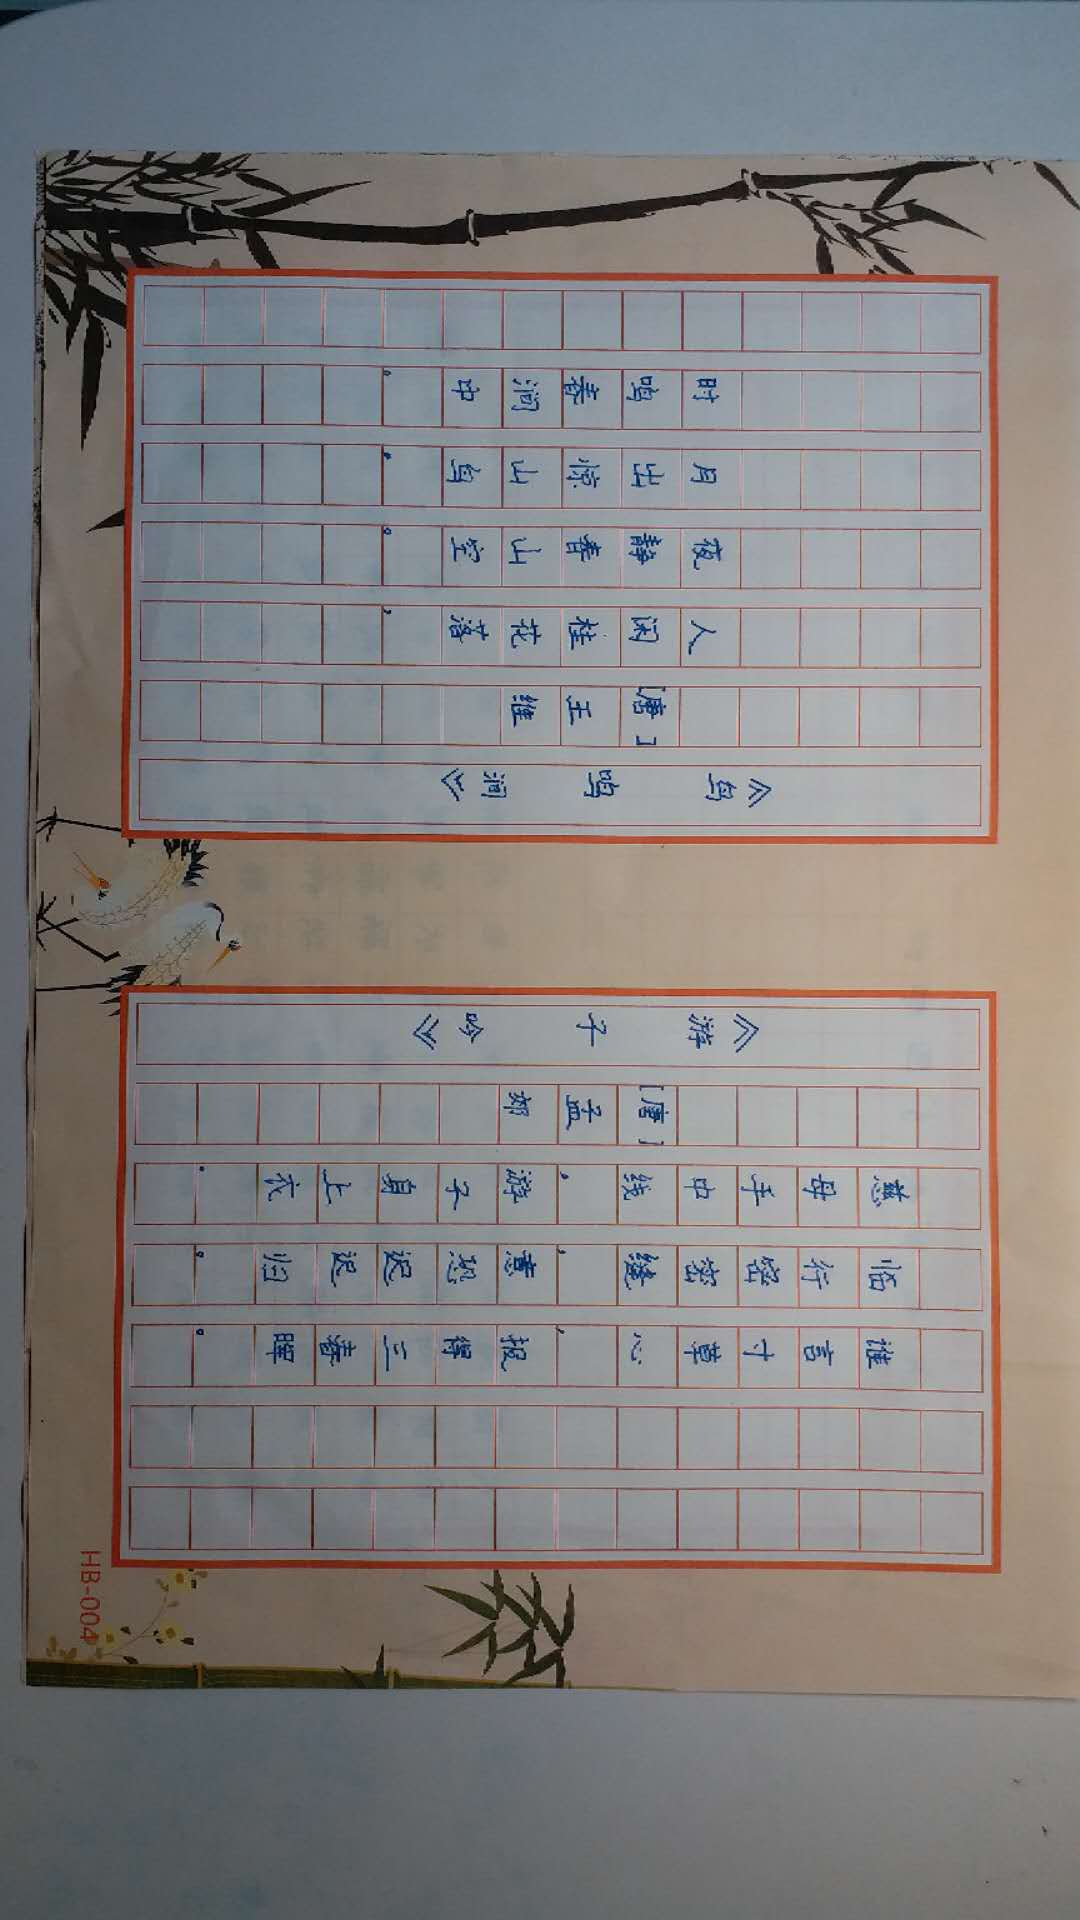 《鸟鸣涧》
[唐]王维
人闲桂花落，
夜静春山空。
月出惊山鸟。
时鸣春涧中。
《游子吟》
[唐]孟郊
慈母手中线，游子身上衣。
临行密密缝，意恐迟迟归。
谁言寸草心，报得三春暉。
HB-004